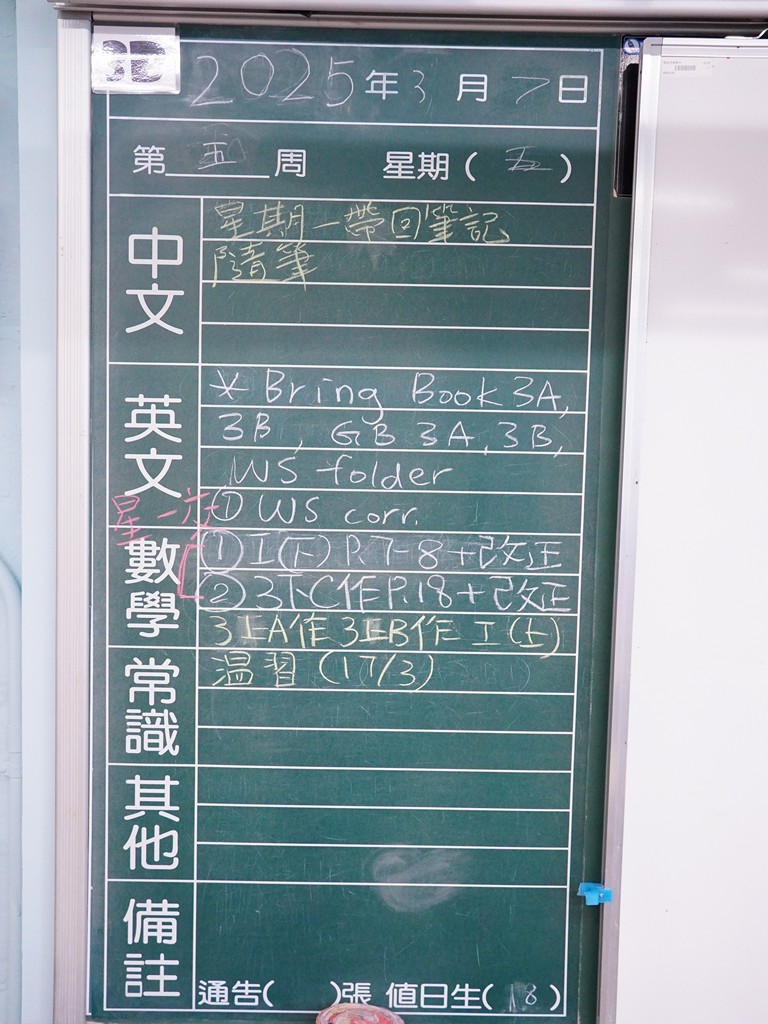 3D
2025年3月7日
第五周 星期(五)
中文
星期一帶回筆記
隋筆
英文
* Bring Book 3A,
3B, GB 3A, 3B,
WS folder
① WS corr.
星一交
數學
① I(下) P.7-8+改正
② 3下C作P.18+改正
3上A作 3上B作 I(上)
常識
温習 (17/3)
其他
備註
通告( )張 值日生(18)